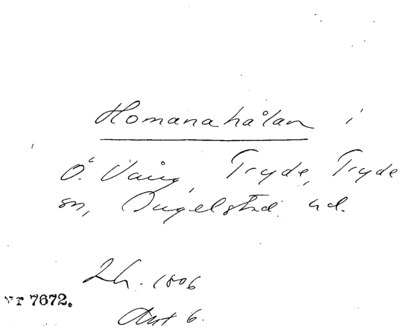 Homanahålan i
Ö. Vång, Tryde, Tryde
sn, Ingelstad hd.
Lh. 1806
Akt 6.
nr 7672.